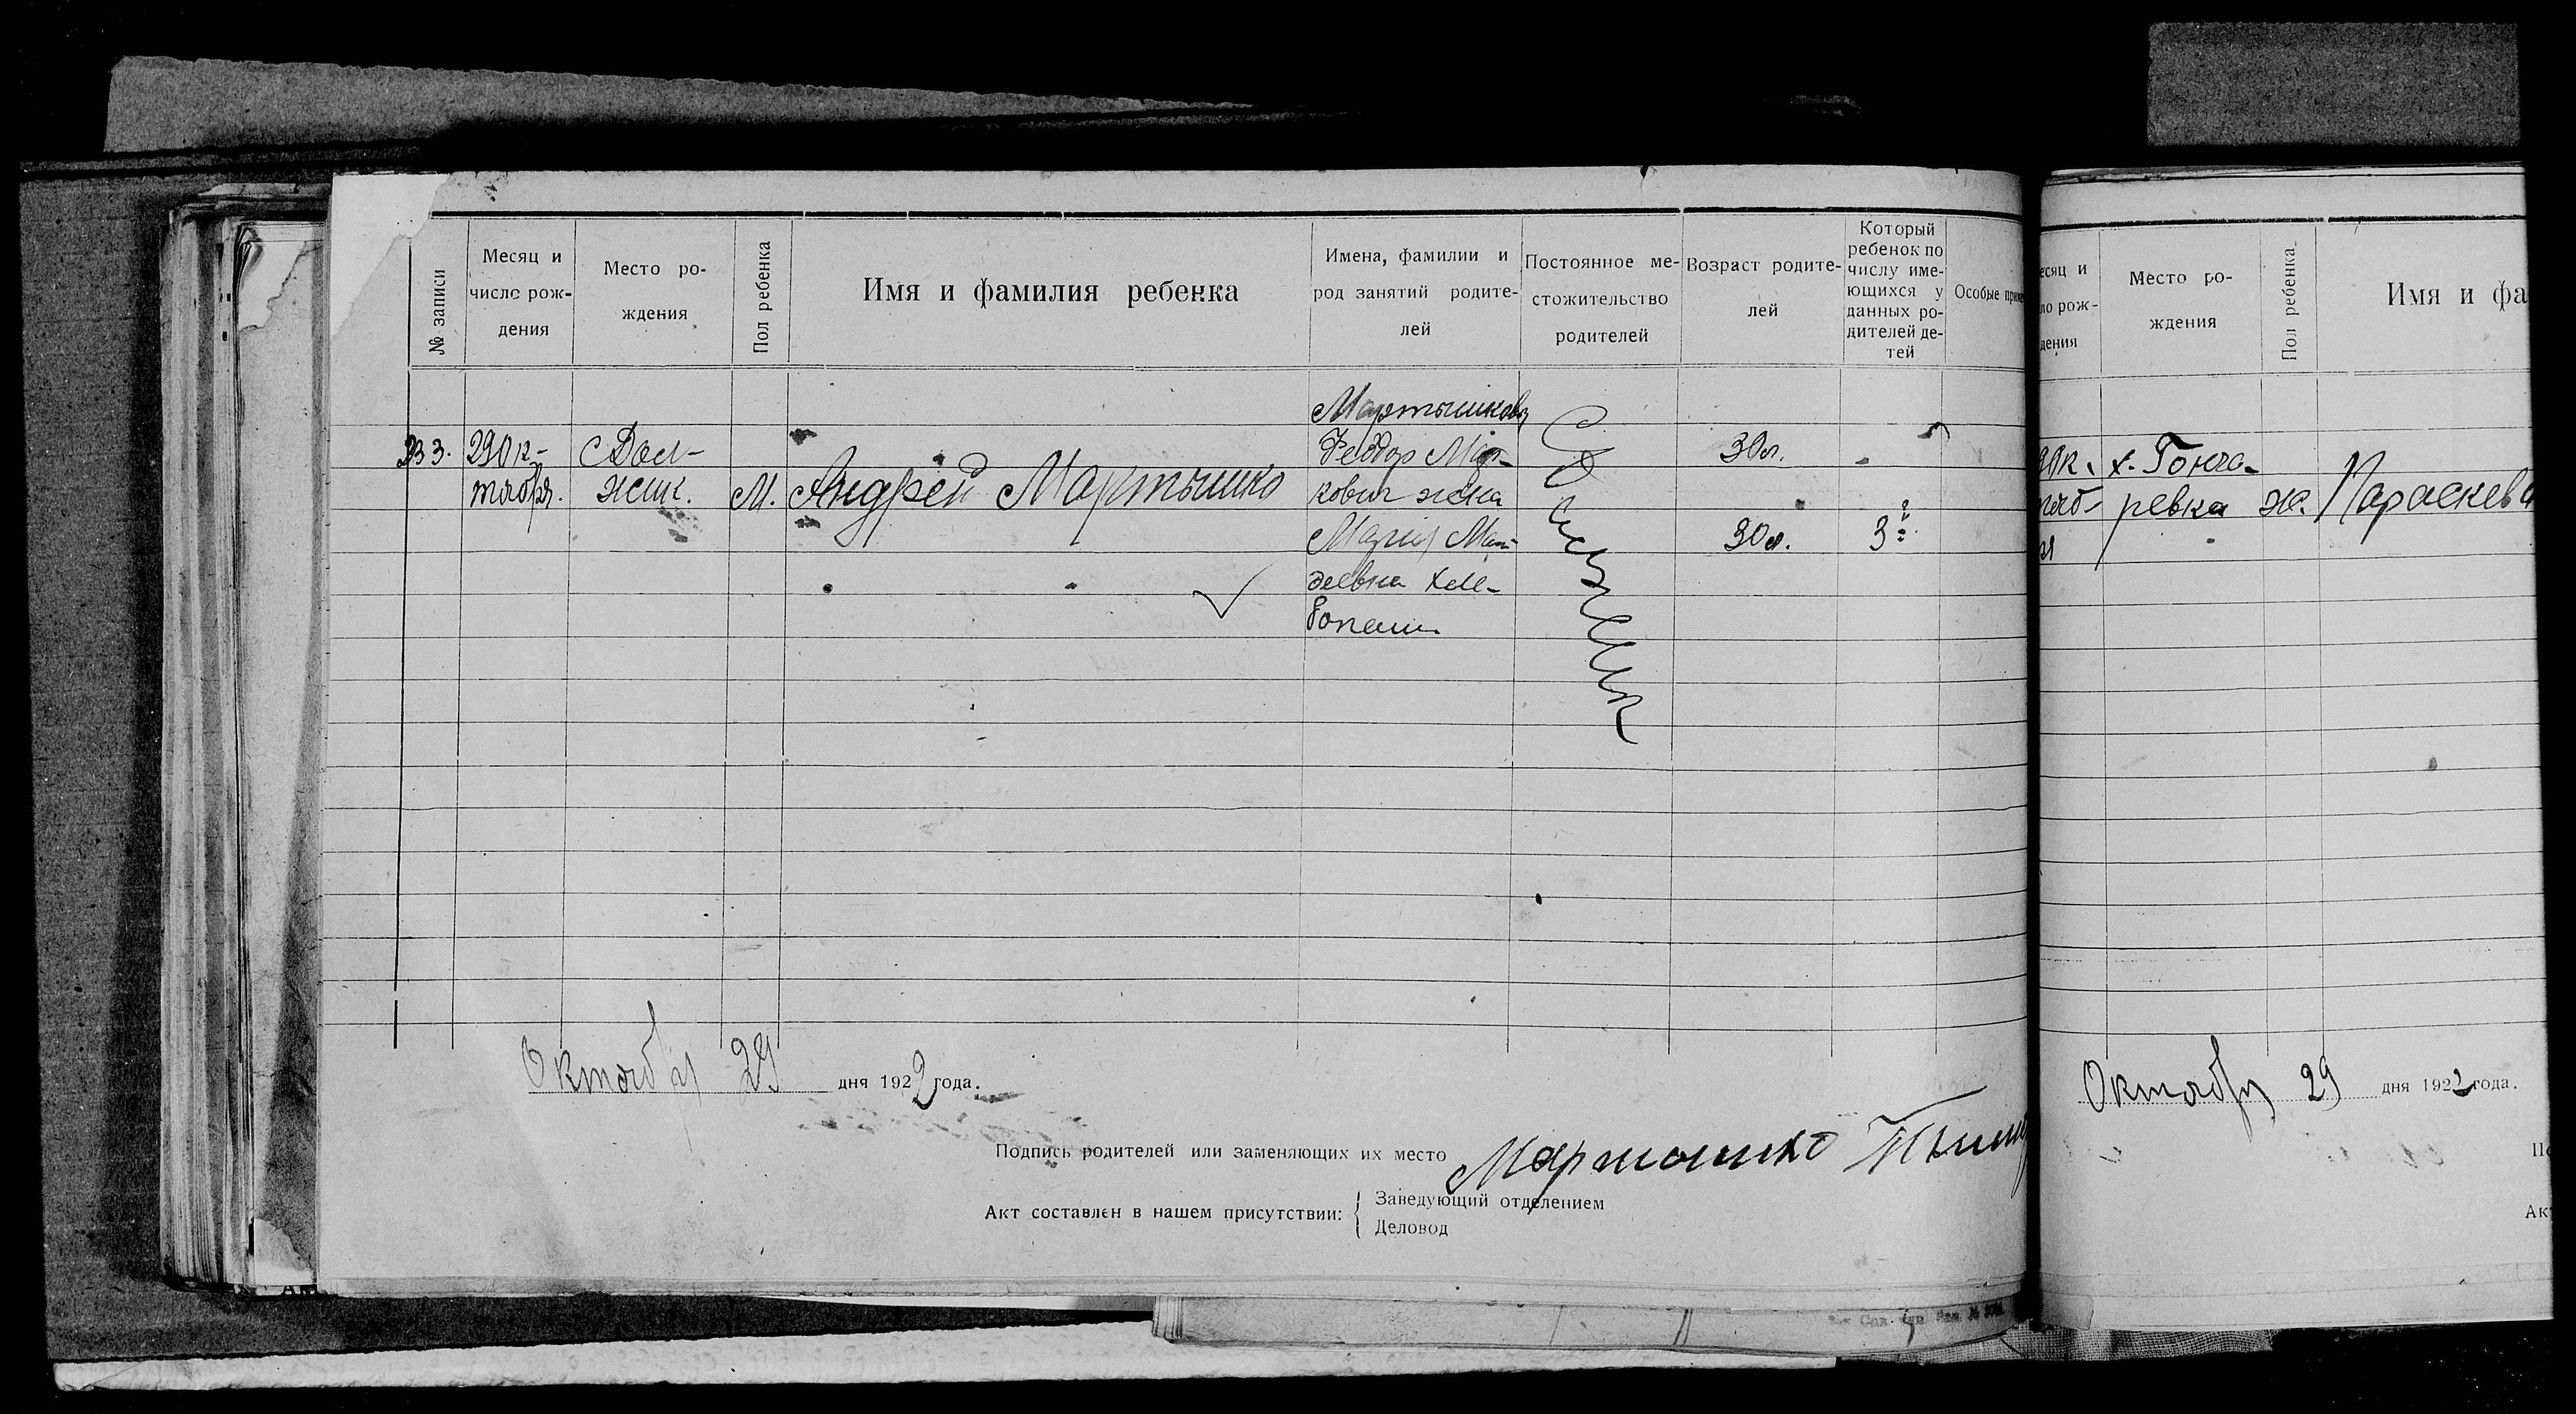 № записи
Месяц и
число рож-
дения
Место ро-
ждения
Пол ребенка
Имя и фамилия ребенка
Имена, фамилии и
род занятий родите-
лей
Постоянное ме-
стожительство
родителей
Возраст родите-
лей
Который
ребенок по
числу име-
ющихся у
данных ро-
дителей де-
тей
Особые приме
233.
29 Ок-
тября.
с Дол-
жик.
М.
Андрей Мартышко
Феодор Мар-
кович жена
Мария
деевна хле-
бопаш.
30 л.
30 л.
3
Октября 29 дня 1922 года.
Подпись родителей или заменяющих их место Мартышко
Акт составлен в нашем присутствии:
Заведующий отделением
Деловод
есяц и
ло рож-
дения
Место ро-
ждения
Пол ребенка
Имя и фа
х. Гонча-
ревка
ж.
Параскева
Октября 29 дня 1922 года.